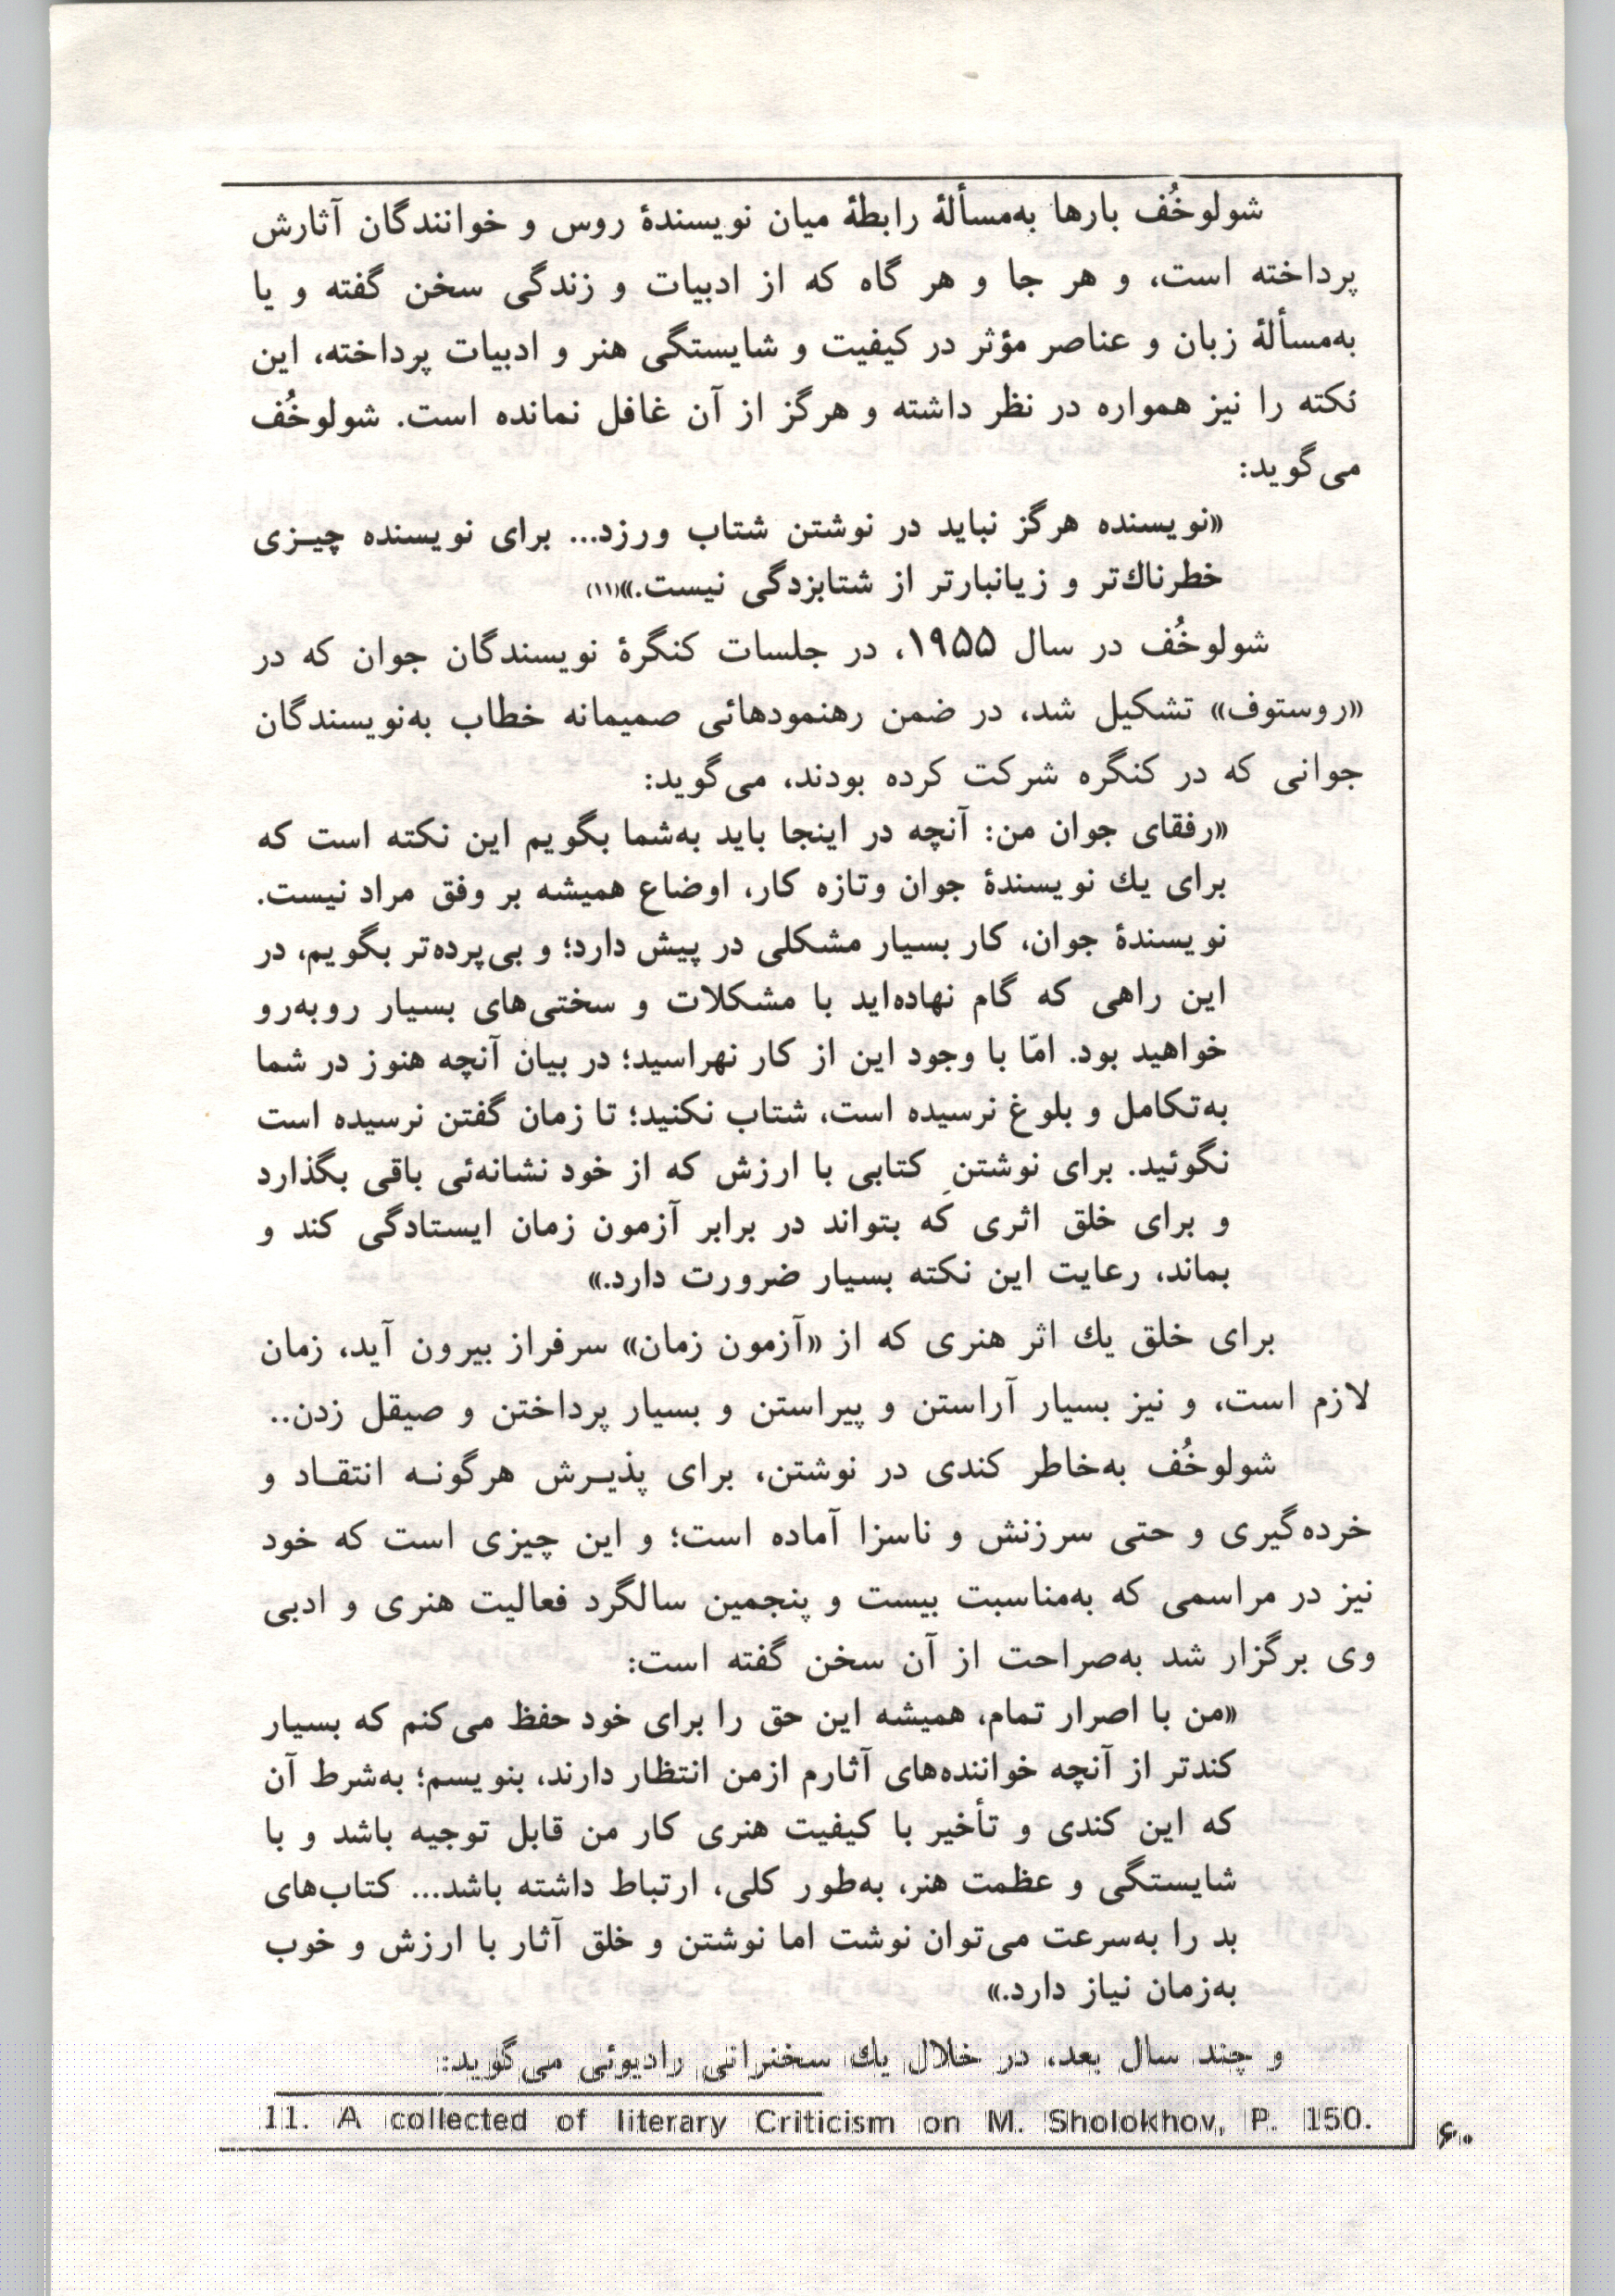 شولوخُف بارها به‌مسألهٔ رابطهٔ میان نویسندهٔ روس و خوانندگان آثارش
پرداخته است، و هر جا و هر گاه که از ادبیات و زندگی سخن گفته و یا
به‌مسألهٔ زبان و عناصر مؤثر در کیفیت و شایستگی هنر و ادبیات پرداخته، این
نکته را نیز همواره در نظر داشته و هرگز از آن غافل نمانده است. شولوخُف
می‌گوید:
«نویسنده هرگز نباید در نوشتن شتاب ورزد... برای نویسنده چیـزی
خطرناك‌تر و زیانبارتر از شتابزدگی نیست.»(۱۱)
شولوخُف در سال ۱۹۵۵، در جلسات کنگرهٔ نویسندگان جوان که در
«روستوف» تشکیل شد، در ضمن رهنمودهائی صمیمانه خطاب به‌نویسندگان
جوانی که در کنگره شرکت کرده بودند، می‌گوید:
«رفقای جوان من: آنچه در اینجا باید به‌شما بگویم این نکته است که
برای یك نویسندهٔ جوان وتازه کار، اوضاع همیشه بر وفق مراد نیست.
نویسندهٔ جوان، کار بسیار مشکلی در پیش دارد؛ و بی‌پرده‌تر بگویم، در
این راهی که گام نهاده‌اید با مشکلات و سختی‌های بسیار روبه‌رو
خواهید بود. امّا با وجود این از کار نهراسید؛ در بیان آنچه هنوز در شما
به‌تکامل و بلوغ نرسیده است، شتاب نکنید؛ تا زمان گفتن نرسیده است
نگوئید. برای نوشتنِ کتابی با ارزش که از خود نشانه‌ئی باقی بگذارد
و برای خلق اثری که بتواند در برابر آزمون زمان ایستادگی کند و
بماند، رعایت این نکته بسیار ضرورت دارد.»
برای خلق یك اثر هنری که از «آزمون زمان» سرفراز بیرون آید، زمان
لازم است، و نیز بسیار آراستن و پیراستن و بسیار پرداختن و صیقل زدن..
شولوخُف به‌خاطر کندی در نوشتن، برای پذیـرش هرگونـه انتقـاد و
خرده‌گیری و حتی سرزنش و ناسزا آماده است؛ و این چیزی است که خود
نیز در مراسمی که به‌مناسبت بیست و پنجمین سالگرد فعالیت هنری و ادبی
وی برگزار شد به‌صراحت از آن سخن گفته است:
«من با اصرار تمام، همیشه این حق را برای خود حفظ می‌کنم که بسیار
کندتر از آنچه خواننده‌های آثارم ازمن انتظار دارند، بنویسم؛ به‌شرط آن
که این کندی و تأخیر با کیفیت هنری کار من قابل توجیه باشد و با
شایستگی و عظمت هنر، به‌طور کلی، ارتباط داشته باشد... کتاب‌های
بد را به‌سرعت می‌توان نوشت اما نوشتن و خلق آثار با ارزش و خوب
به‌زمان نیاز دارد.»
و چند سال بعد، در خلال یك سخنرانی رادیوئی می‌گوید:
11. A collected of literary Criticism on M. Sholokhov, P. 150.
۶۰